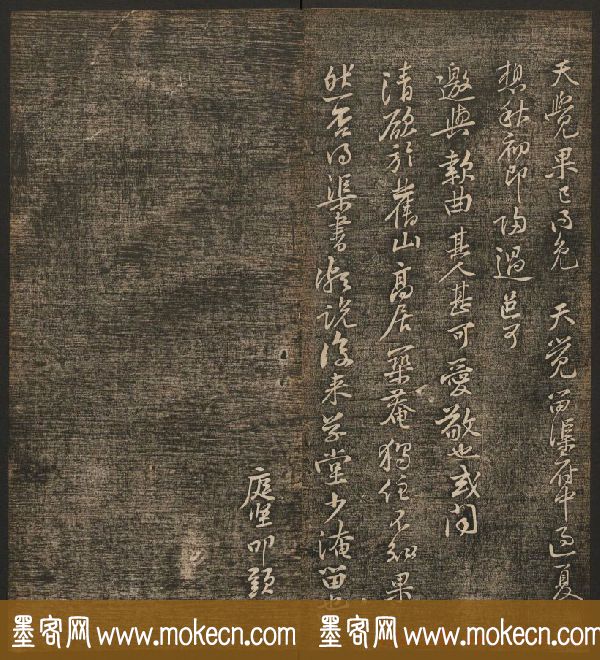 天覺果已得免 天覺留渠府中過夏
想秋初即歸過邑可
邀與款曲其人甚可愛敬也或聞
清欲於舊山高居築菴獨住不知果
然否得渠書說後来堂少淹留也
庭堅叩頭
墨客网 www.mokecn.com 墨客网 www.mokecn.com